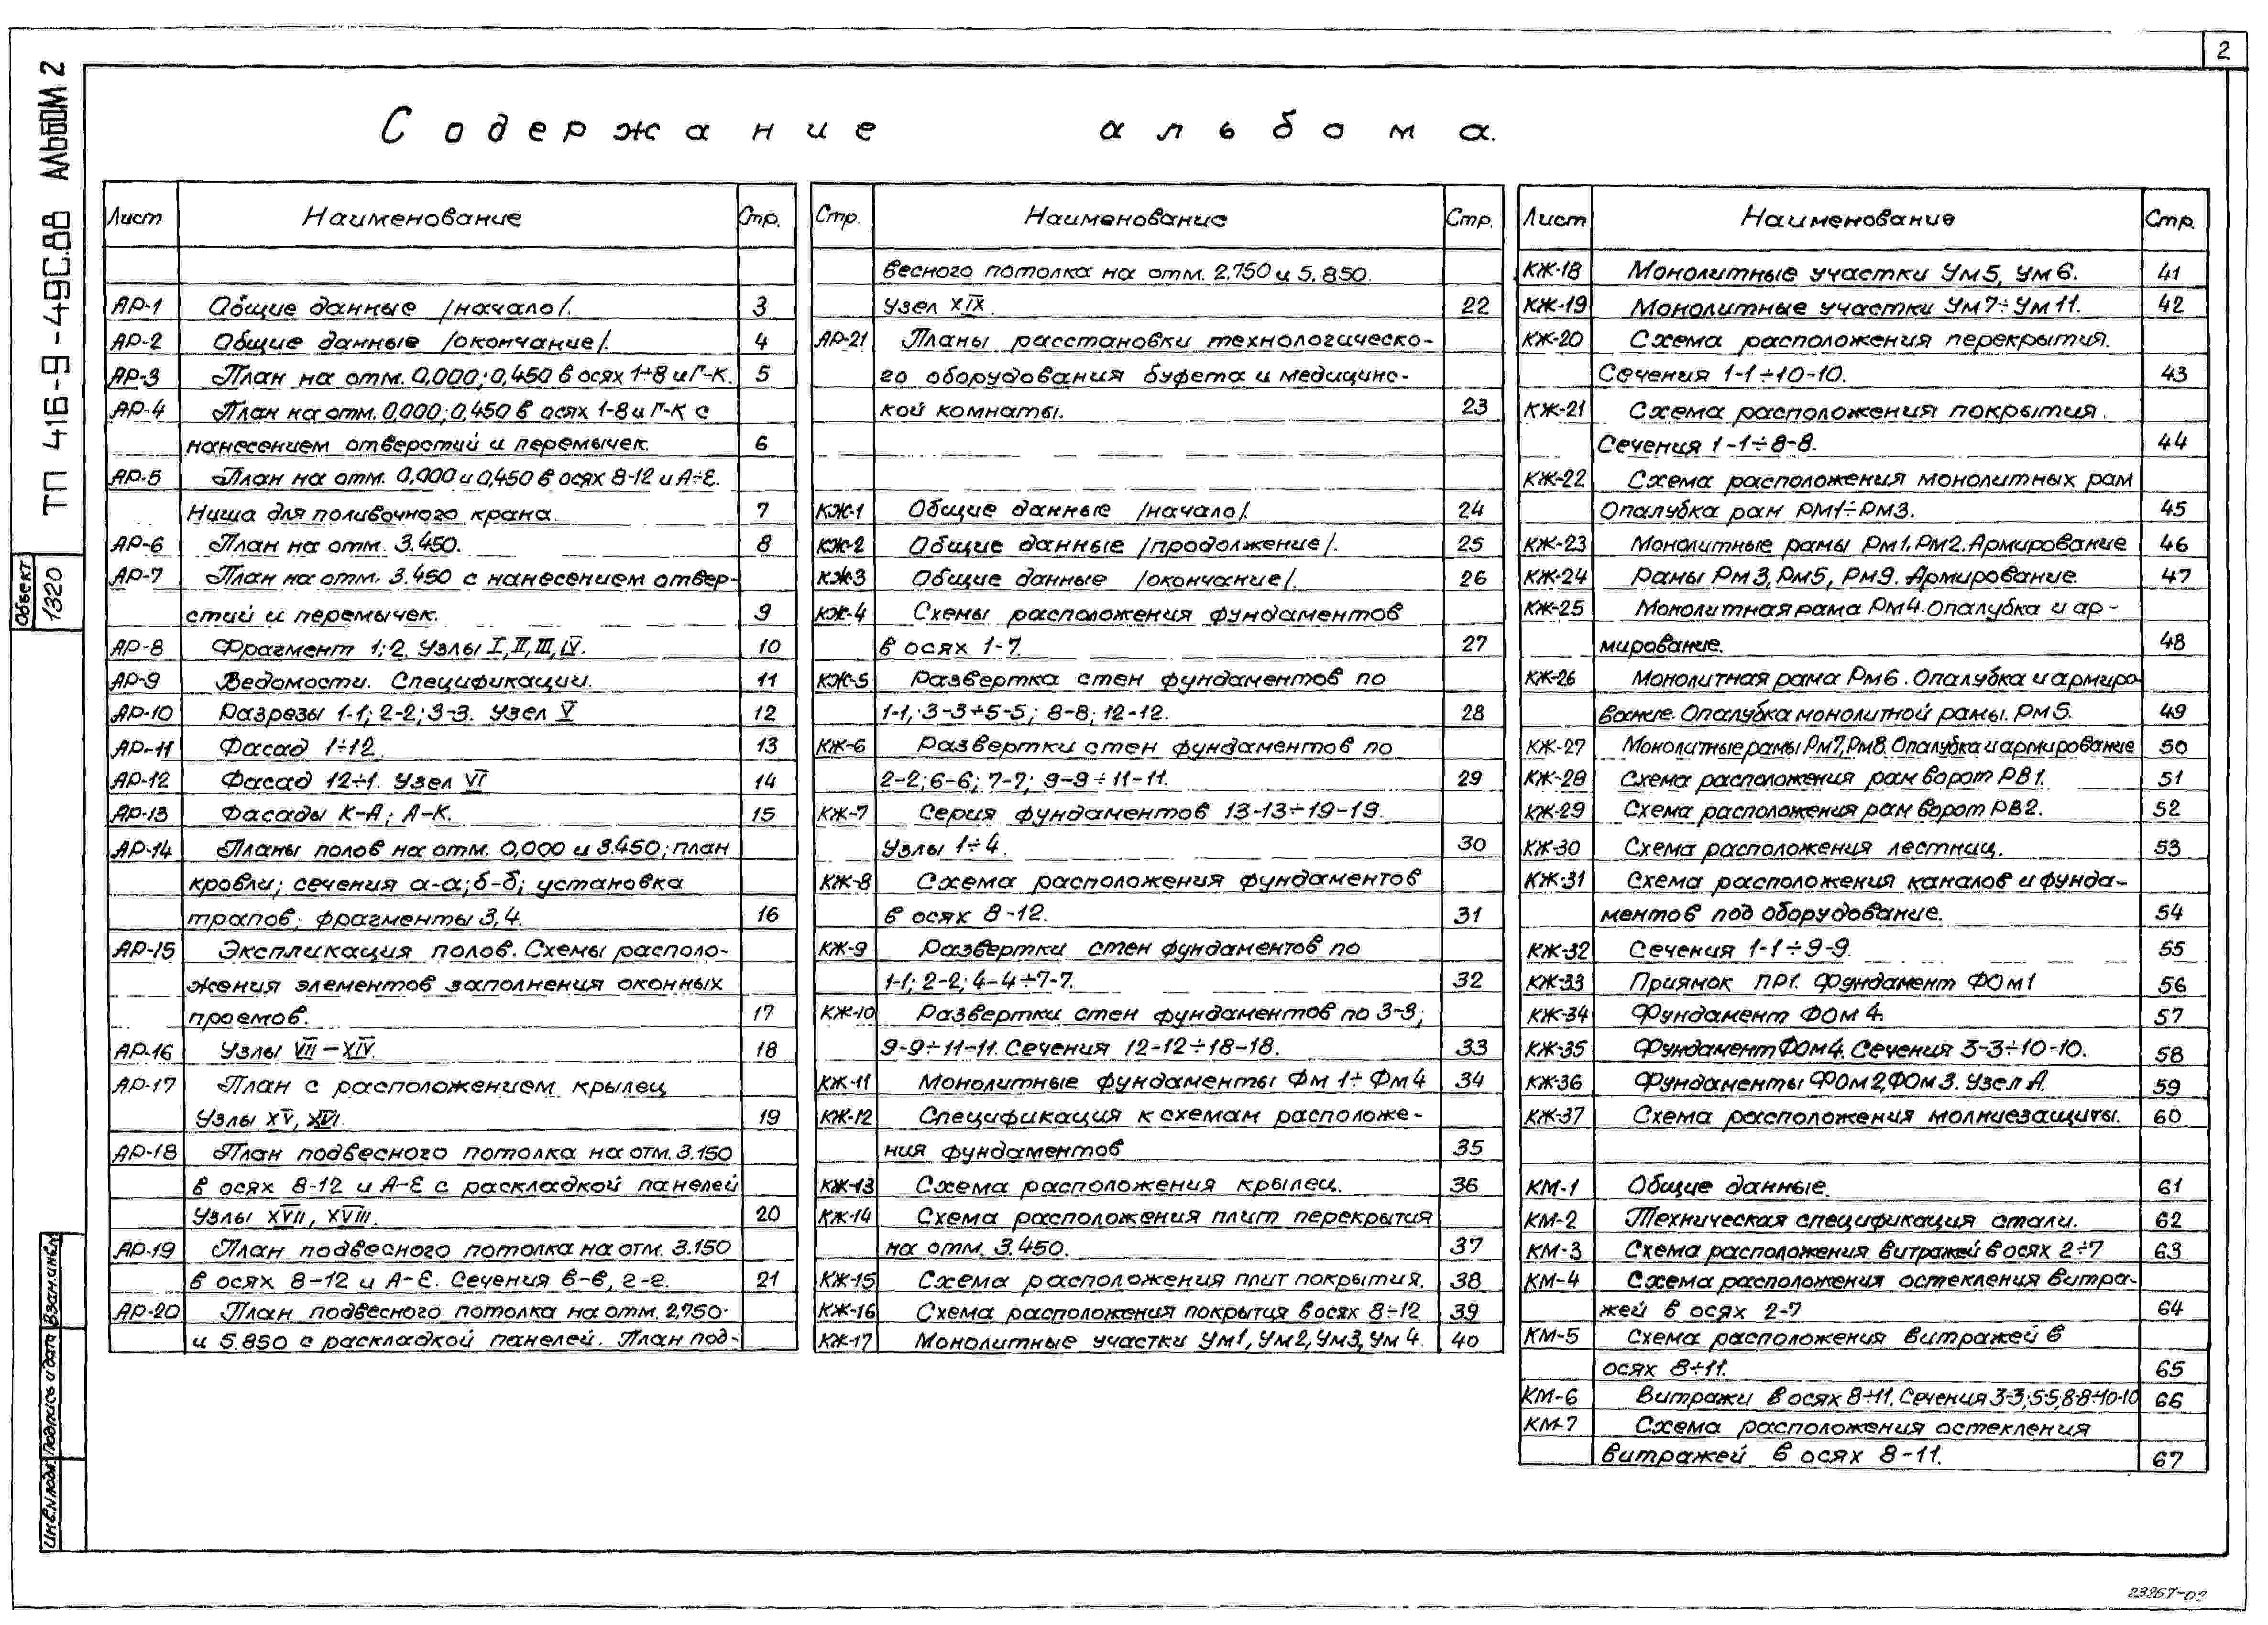 2
ТП 416-9-49С.88 АЛЬБОМ 2
Объект
1320
Взам.инв.№
Подпись и дата
Инв.№ подл.
Содержание альбома.
Лист Наименование Стр.
АР-1 Общие данные /начало/. 3
АР-2 Общие данные /окончание/. 4
АР-3 План на отм. 0,000; 0,450 в осях 1÷8 и Г-К. 5
АР-4 План на отм. 0,000; 0,450 в осях 1-8 и Г-К с
нанесением отверстий и перемычек. 6
АР-5 План на отм. 0,000 и 0,450 в осях 8-12 и А÷Е.
Ниша для поливочного крана. 7
АР-6 План на отм. 3.450. 8
АР-7 План на отм. 3.450 с нанесением отвер-
стий и перемычек. 9
АР-8 Фрагмент 1; 2. Узлы I, II, III, IV. 10
АР-9 Ведомости. Спецификации. 11
АР-10 Разрезы 1-1; 2-2; 3-3. Узел V 12
АР-11 Фасад 1÷12. 13
АР-12 Фасад 12÷1. Узел VI 14
АР-13 Фасады К-А; А-К. 15
АР-14 Планы полов на отм. 0,000 и 3.450; план
кровли; сечения а-а; б-б; установка
трапов; фрагменты 3,4. 16
АР-15 Экспликация полов. Схемы располо-
жения элементов заполнения оконных
проемов. 17
АР-16 Узлы VII – XIV. 18
АР-17 План с расположением крылец
Узлы XV, XVI. 19
АР-18 План подвесного потолка на отм. 3.150
в осях 8-12 и А-Е с раскладкой панелей
Узлы XVII, XVIII. 20
АР-19 План подвесного потолка на отм. 3.150
в осях 8-12 и А-Е. Сечения в-в, г-г. 21
АР-20 План подвесного потолка на отм. 2,750
и 5.850 с раскладкой панелей. План под-
Стр. Наименование Стр.
весного потолка на отм. 2.750 и 5.850.
Узел XIX. 22
АР-21 Планы расстановки технологическо-
го оборудования буфета и медицинс-
кой комнаты. 23
КЖ-1 Общие данные /начало/. 24
КЖ-2 Общие данные /продолжение/. 25
КЖ-3 Общие данные /окончание/. 26
КЖ-4 Схемы расположения фундаментов
в осях 1-7. 27
КЖ-5 Развертка стен фундаментов по
1-1; 3-3÷5-5; 8-8; 12-12. 28
КЖ-6 Развертки стен фундаментов по
2-2; 6-6; 7-7; 9-9÷11-11. 29
КЖ-7 Серия фундаментов 13-13÷19-19.
Узлы 1÷4. 30
КЖ-8 Схема расположения фундаментов
в осях 8-12. 31
КЖ-9 Развертки стен фундаментов по
1-1; 2-2; 4-4÷7-7. 32
КЖ-10 Развертки стен фундаментов по 3-3;
9-9÷11-11. Сечения 12-12÷18-18. 33
КЖ-11 Монолитные фундаменты Фм 1÷Фм4 34
КЖ-12 Спецификация к схемам расположе-
ния фундаментов 35
КЖ-13 Схема расположения крылец. 36
КЖ-14 Схема расположения плит перекрытия
на отм. 3.450. 37
КЖ-15 Схема расположения плит покрытия. 38
КЖ-16 Схема расположения покрытия в осях 8÷12 39
КЖ-17 Монолитные участки Ум1, Ум2, Ум3, Ум4. 40
Лист Наименование Стр.
КЖ-18 Монолитные участки Ум5, Ум6. 41
КЖ-19 Монолитные участки Ум7÷Ум11. 42
КЖ-20 Схема расположения перекрытия.
Сечения 1-1÷10-10. 43
КЖ-21 Схема расположения покрытия.
Сечения 1-1÷8-8. 44
КЖ-22 Схема расположения монолитных рам
Опалубка рам РМ1÷РМ3. 45
КЖ-23 Монолитные рамы Рм1, Рм2. Армирование 46
КЖ-24 Рамы Рм3, Рм5, Рм9. Армирование. 47
КЖ-25 Монолитная рама Рм4. Опалубка и ар-
мирование. 48
КЖ-26 Монолитная рама Рм6. Опалубка и армиро
вание. Опалубка монолитной рамы. Рм5. 49
КЖ-27 Монолитные рамы Рм7, Рм8. Опалубка и армирование 50
КЖ-28 Схема расположения рам ворот РВ1. 51
КЖ-29 Схема расположения рам ворот РВ2. 52
КЖ-30 Схема расположения лестниц. 53
КЖ-31 Схема расположения каналов и фунда-
ментов под оборудование. 54
КЖ-32 Сечения 1-1÷9-9. 55
КЖ-33 Приямок ПР1. Фундамент ФОм1 56
КЖ-34 Фундамент ФОм4. 57
КЖ-35 Фундамент ФОм4. Сечения 3-3÷10-10. 58
КЖ-36 Фундаменты ФОм2, ФОм3. Узел А. 59
КЖ-37 Схема расположения молниезащиты. 60
КМ-1 Общие данные. 61
КМ-2 Техническая спецификация стали. 62
КМ-3 Схема расположения витражей в осях 2÷7 63
КМ-4 Схема расположения остекления витра-
жей в осях 2-7 64
КМ-5 Схема расположения витражей в
осях 8÷11. 65
КМ-6 Витражи в осях 8÷11. Сечения 3-3; 5-5, 8-8÷10-10 66
КМ-7 Схема расположения остекления
витражей в осях 8-11. 67
23267-02